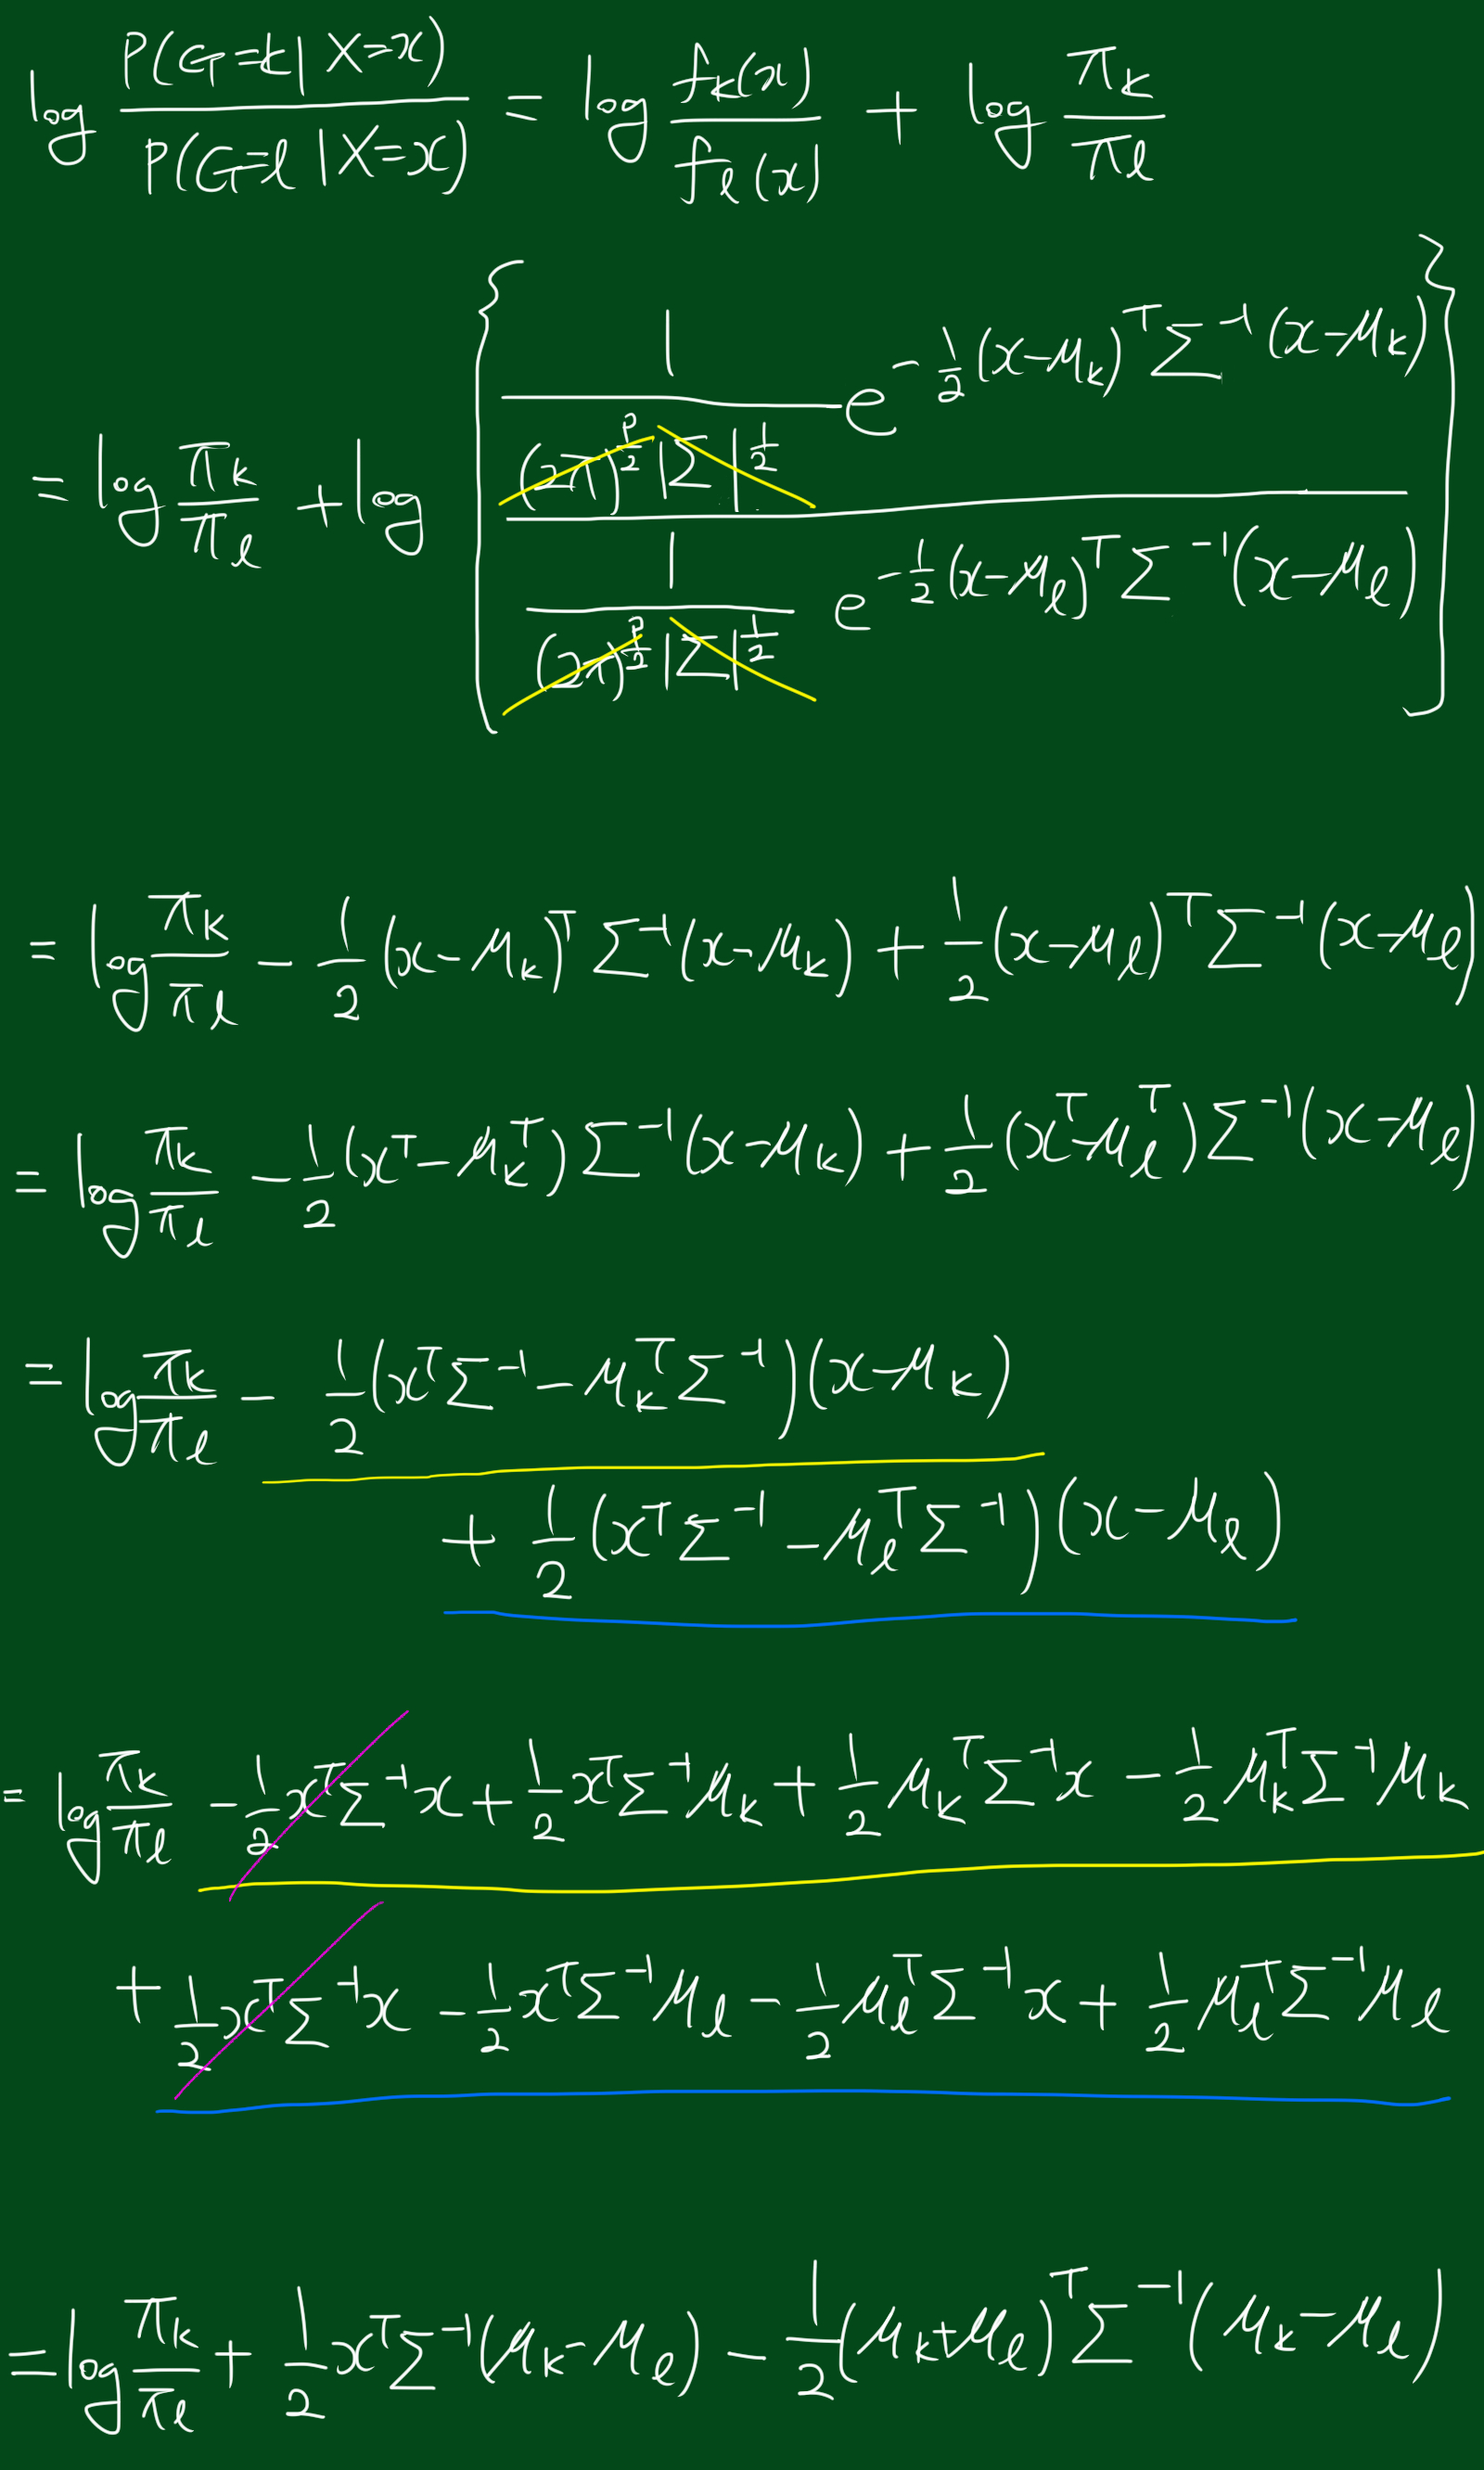 log P(G=k|X=x) / P(G=ℓ|X=x) = log f_k(x) / f_ℓ(x) + log π_k / π_ℓ
= log π_k / π_ℓ + log { [1 / ((2π)^{p/2} |Σ|^{1/2}) e^{-1/2 (x-μ_k)^T Σ^{-1} (x-μ_k)}] / [1 / ((2π)^{p/2} |Σ|^{1/2}) e^{-1/2 (x-μ_ℓ)^T Σ^{-1} (x-μ_ℓ)}] }
= log π_k / π_ℓ - 1/2 (x-μ_k)^T Σ^{-1} (x-μ_k) + 1/2 (x-μ_ℓ)^T Σ^{-1} (x-μ_ℓ)
= log π_k / π_ℓ - 1/2 (x^T - μ_k^T) Σ^{-1} (x-μ_k) + 1/2 (x^T - μ_ℓ^T) Σ^{-1} (x-μ_ℓ)
= log π_k / π_ℓ - 1/2 (x^T Σ^{-1} - μ_k^T Σ^{-1}) (x-μ_k)
+ 1/2 (x^T Σ^{-1} - μ_ℓ^T Σ^{-1}) (x-μ_ℓ)
= log π_k / π_ℓ - 1/2 x^T Σ^{-1} x + 1/2 x^T Σ^{-1} μ_k + 1/2 μ_k^T Σ^{-1} x - 1/2 μ_k^T Σ^{-1} μ_k
+ 1/2 x^T Σ^{-1} x - 1/2 x^T Σ^{-1} μ_ℓ - 1/2 μ_ℓ^T Σ^{-1} x + 1/2 μ_ℓ^T Σ^{-1} μ_ℓ
= log π_k / π_ℓ + 1/2 x^T Σ^{-1} (μ_k - μ_ℓ) - 1/2 (μ_k + μ_ℓ)^T Σ^{-1} (μ_k - μ_ℓ)